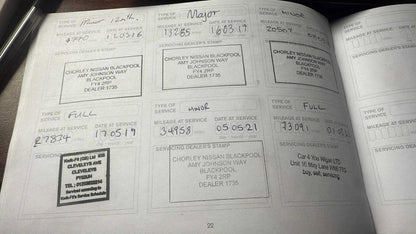 TYPE OF SERVICE Minor 12mth.
MILEAGE AT SERVICE DATE AT SERVICE
12 03 16
SERVICING DEALER'S STAMP
CHORLEY NISSAN BLACKPOOL
AMY JOHNSON WAY
BLACKPOOL
FY4 2RP
DEALER 1735
TYPE OF SERVICE Major
MILEAGE AT SERVICE DATE AT SERVICE
13285 16 03 17
SERVICING DEALER'S STAMP
CHORLEY NISSAN BLACKPOOL
AMY JOHNSON WAY
BLACKPOOL
FY4 2RP
DEALER 1735
TYPE OF SERVICE MINOR
MILEAGE AT SERVICE DATE AT SERVICE
20567
SERVICING DEALER'S STAMP
CHORLEY NISSAN BLACKPOOL
AMY JOHNSON WAY
BLACKPOOL
FY4 2RP
DEALER 1735
TYPE OF SERVICE FULL
MILEAGE AT SERVICE DATE AT SERVICE
27834 17 05 19
SERVICING DEALER'S STAMP
Kwik-Fit (GB) Ltd
CLEVELEYS AVE
CLEVELEYS
Serviced according to
Kwik-Fit's Service Schedule
TYPE OF SERVICE MINOR
MILEAGE AT SERVICE DATE AT SERVICE
34958 05 05 21
SERVICING DEALER'S STAMP
CHORLEY NISSAN BLACKPOOL
AMY JOHNSON WAY
BLACKPOOL
FY4 2RP
DEALER 1735
TYPE OF SERVICE FULL
MILEAGE AT SERVICE DATE AT SERVICE
SERVICING DEALER'S STAMP
Car 4 You Wigan LTD
Unit 16 May Lane WN6 7TG
buy, sell, servicing
22